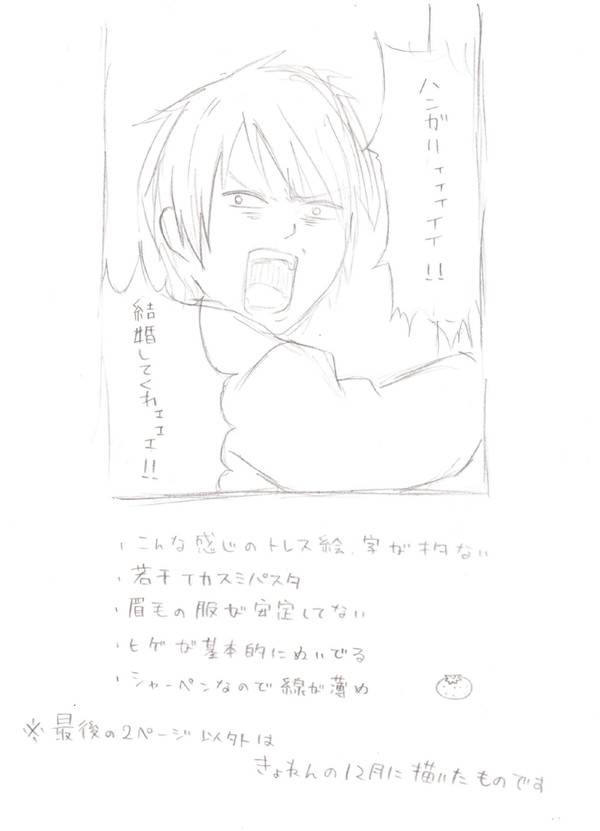 ハンガリィィィイイ!!
結婚してくれェェェ!!
・こんな感じのトレス絵、字がキタない
・若干イカスミパスタ
・眉毛の服が安定してない
・ヒゲが基本的にぬいでる
・シャーペンなので線が薄め
※最後の2ページ以外は
きょねんの12月に描いたものです